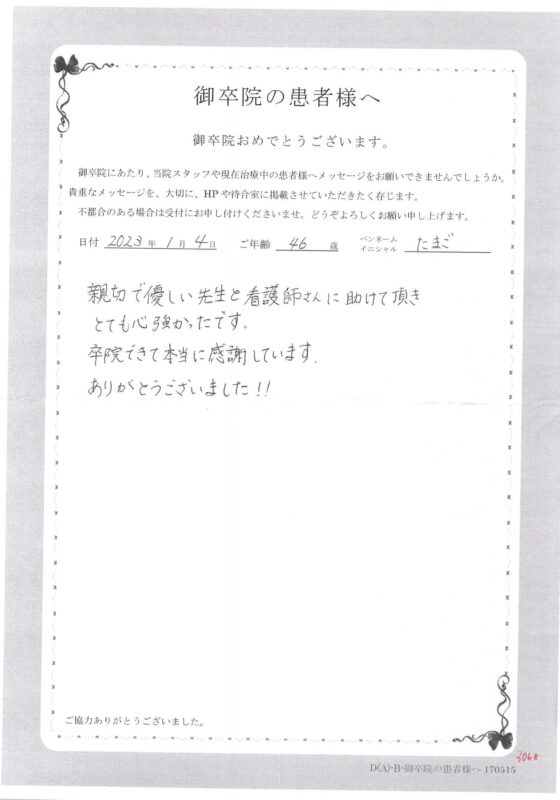 御卒院の患者様へ
御卒院おめでとうございます。
御卒院にあたり、当院スタッフや現在治療中の患者様へメッセージをお願いできませんでしょうか。
貴重なメッセージを、大切に、HPや待合室に掲載させていただきたく存じます。
不都合のある場合は受付にお申し付けくださいませ。どうぞよろしくお願い申し上げます。
日付 2023年 1月 4日 ご年齢 46歳 ペンネーム イニシャル たまご
親切で優しい先生と看護師さんに助けて頂き
とても心強かったです。
卒院できて本当に感謝しています.
ありがとうございました!!
ご協力ありがとうございました。
3068
D(A)-B-御卒院の患者様へ 170515